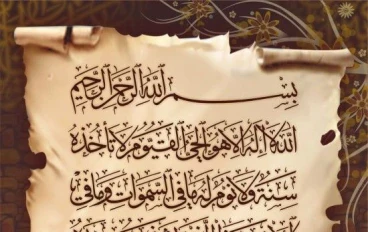 بِسْمِ اللَّهِ الرَّحْمَٰنِ الرَّحِيمِ
اللَّهُ لَا إِلَٰهَ إِلَّا هُوَ الْحَيُّ الْقَيُّومُ لَا تَأْخُذُهُ
سِنَةٌ وَلَا نَوْمٌ لَهُ مَا فِي السَّمَوَاتِ وَمَا فِي